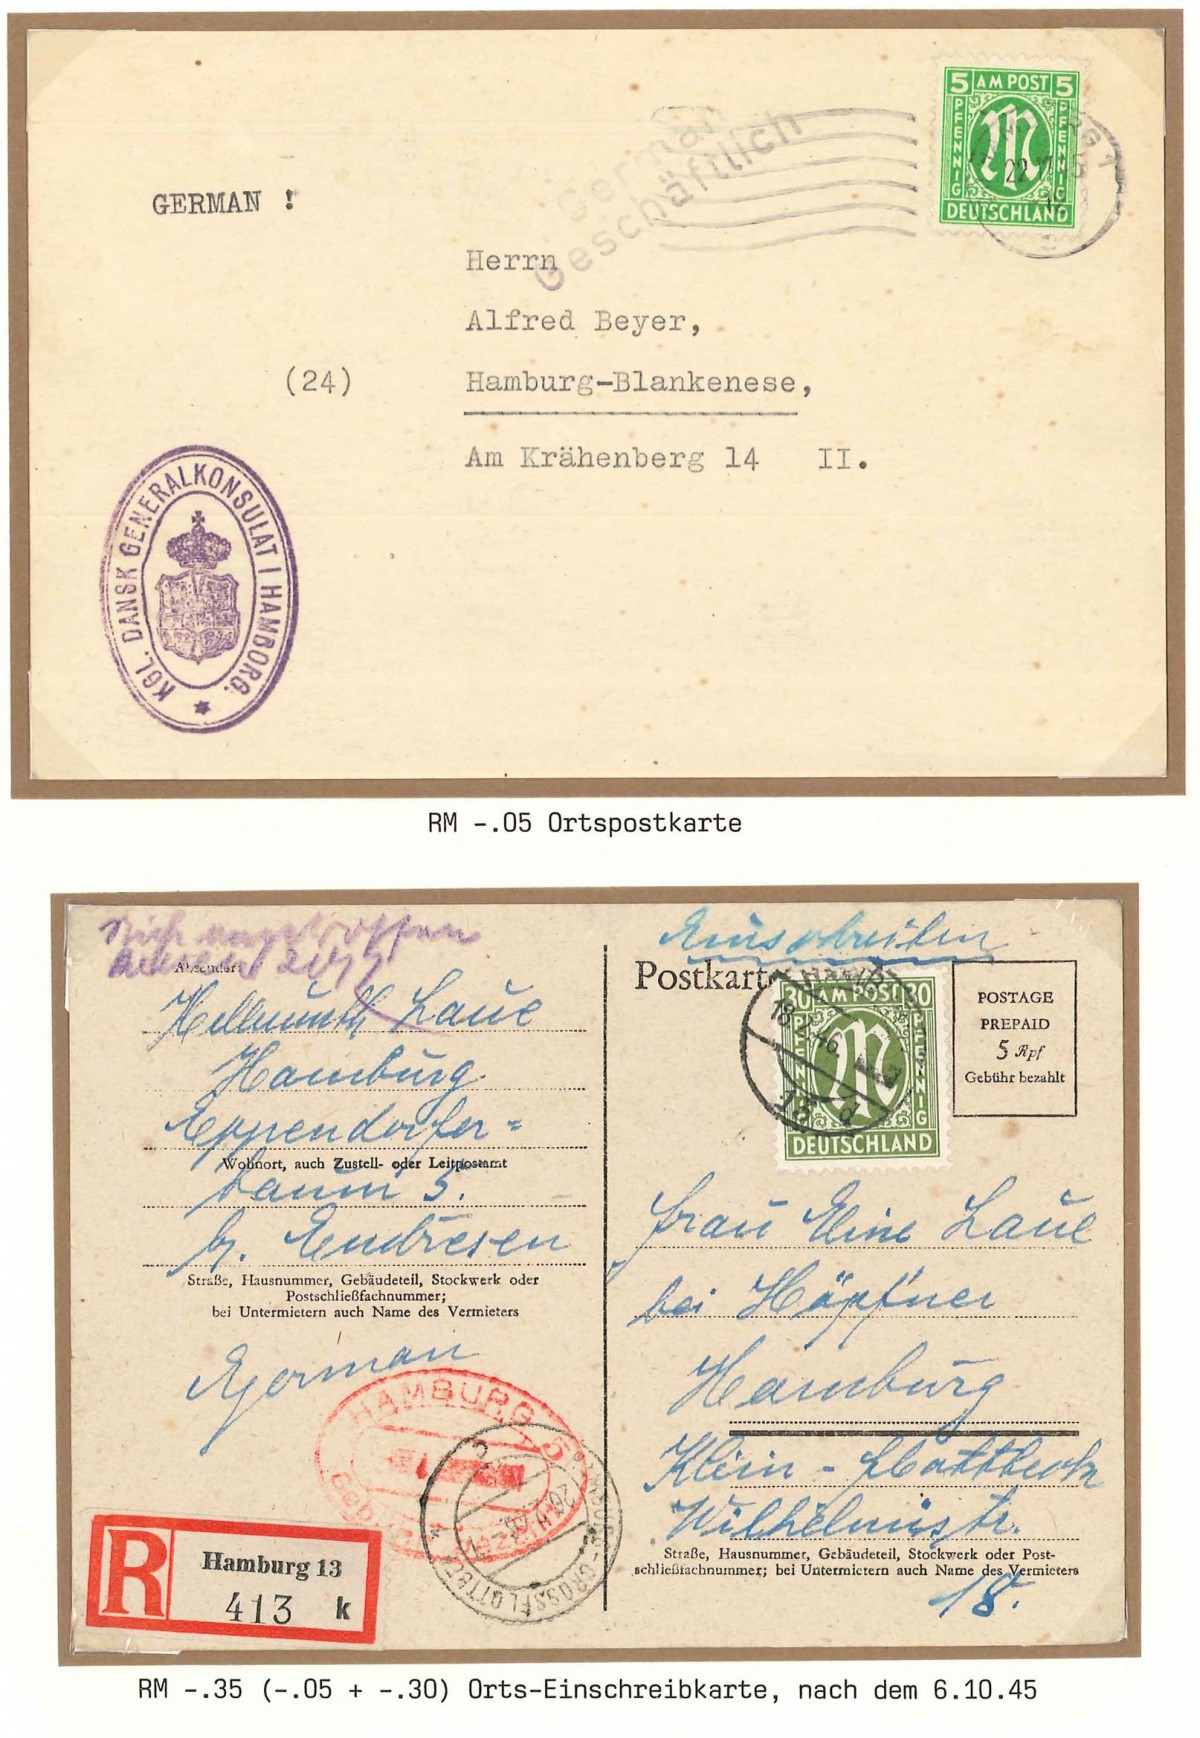 5 AM POST 5
PFENNIG PFENNIG
DEUTSCHLAND
22.11.45
German
Geschäftlich
GERMAN !
Herrn
Alfred Beyer,
(24) Hamburg-Blankenese,
Am Krähenberg 14 II.
KGL. DANSK GENERALKONSULAT I HAMBORG.
RM -.05 Ortspostkarte
Einschreiben
Absender:
Postkarte
30 AM POST 30
PFENNIG PFENNIG
DEUTSCHLAND
18.2.46
POSTAGE
PREPAID
5 Rpf
Gebühr bezahlt
Hellmuth Laue
Hamburg
Eppendorfer=
Wohnort, auch Zustell- oder Leitpostamt
baum 5.
b. Endresen
Straße, Hausnummer, Gebäudeteil, Stockwerk oder
Postschließfachnummer;
bei Untermietern auch Name des Vermieters
German
Frau Eline Laue
bei Höpfner
Hamburg
Klein-Flottbeck
Wilhelmistr.
Straße, Hausnummer, Gebäudeteil, Stockwerk oder Post-
schließfachnummer; bei Untermietern auch Name des Vermieters
18.
HAMBURG 5
HAMBURG-GROSSFLOTTBEK
R Hamburg 13
413 k
RM -.35 (-.05 + -.30) Orts-Einschreibkarte, nach dem 6.10.45